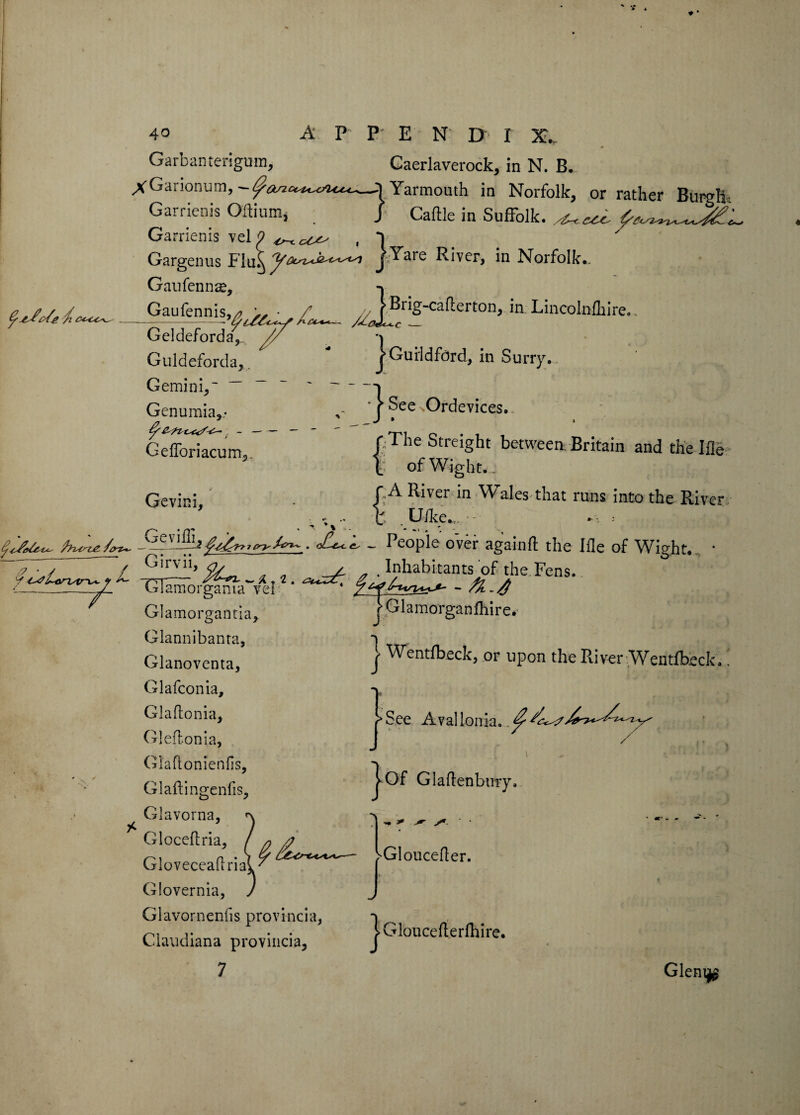 40 APPENDIX.
Garbanterigum, Caerlaverock, in N. B.
Garionum, Yarmouth in Norfolk, or rather Burgh
Garrienis Oſtium, Caſtle in Suffolk.
Garrienis vel
Gargenus Flu. Yare River, in Norfolk.
Gaufennæ,
Gaufennis, Brig-caſterton, in Lincolnſhire.
Geldeforda,
Guldeforda, Guildford, in Surry.
Gemini,
Genumia, See Ordevices.
Geſſoriacum, The Streight between Britain and the Iſle
of Wight.
Gevini, A River in Wales that runs into the River
Uſke.
Geviſſi, People over againſt the Iſle of Wight.
Girvii, Inhabitants of the Fens.
Glamorgania vel
Glamorgantia, Glamorganſhire.
Glannibanta,
Glanoventa, Wentſbeck, or upon the River Wentſbeck.
Glaſconia,
Glaſtonia, See Avallonia.
Gleſtonia,
Glaſtonienſis,
Glaſtingenſis, Of Glaſtenbury.
Glavorna,
Gloceſtria,
Gloveceaſtria, Glouceſter.
Glovernia,
Glavornenſis provincia,
Claudiana provincia, Glouceſterſhire.
7 Glenus